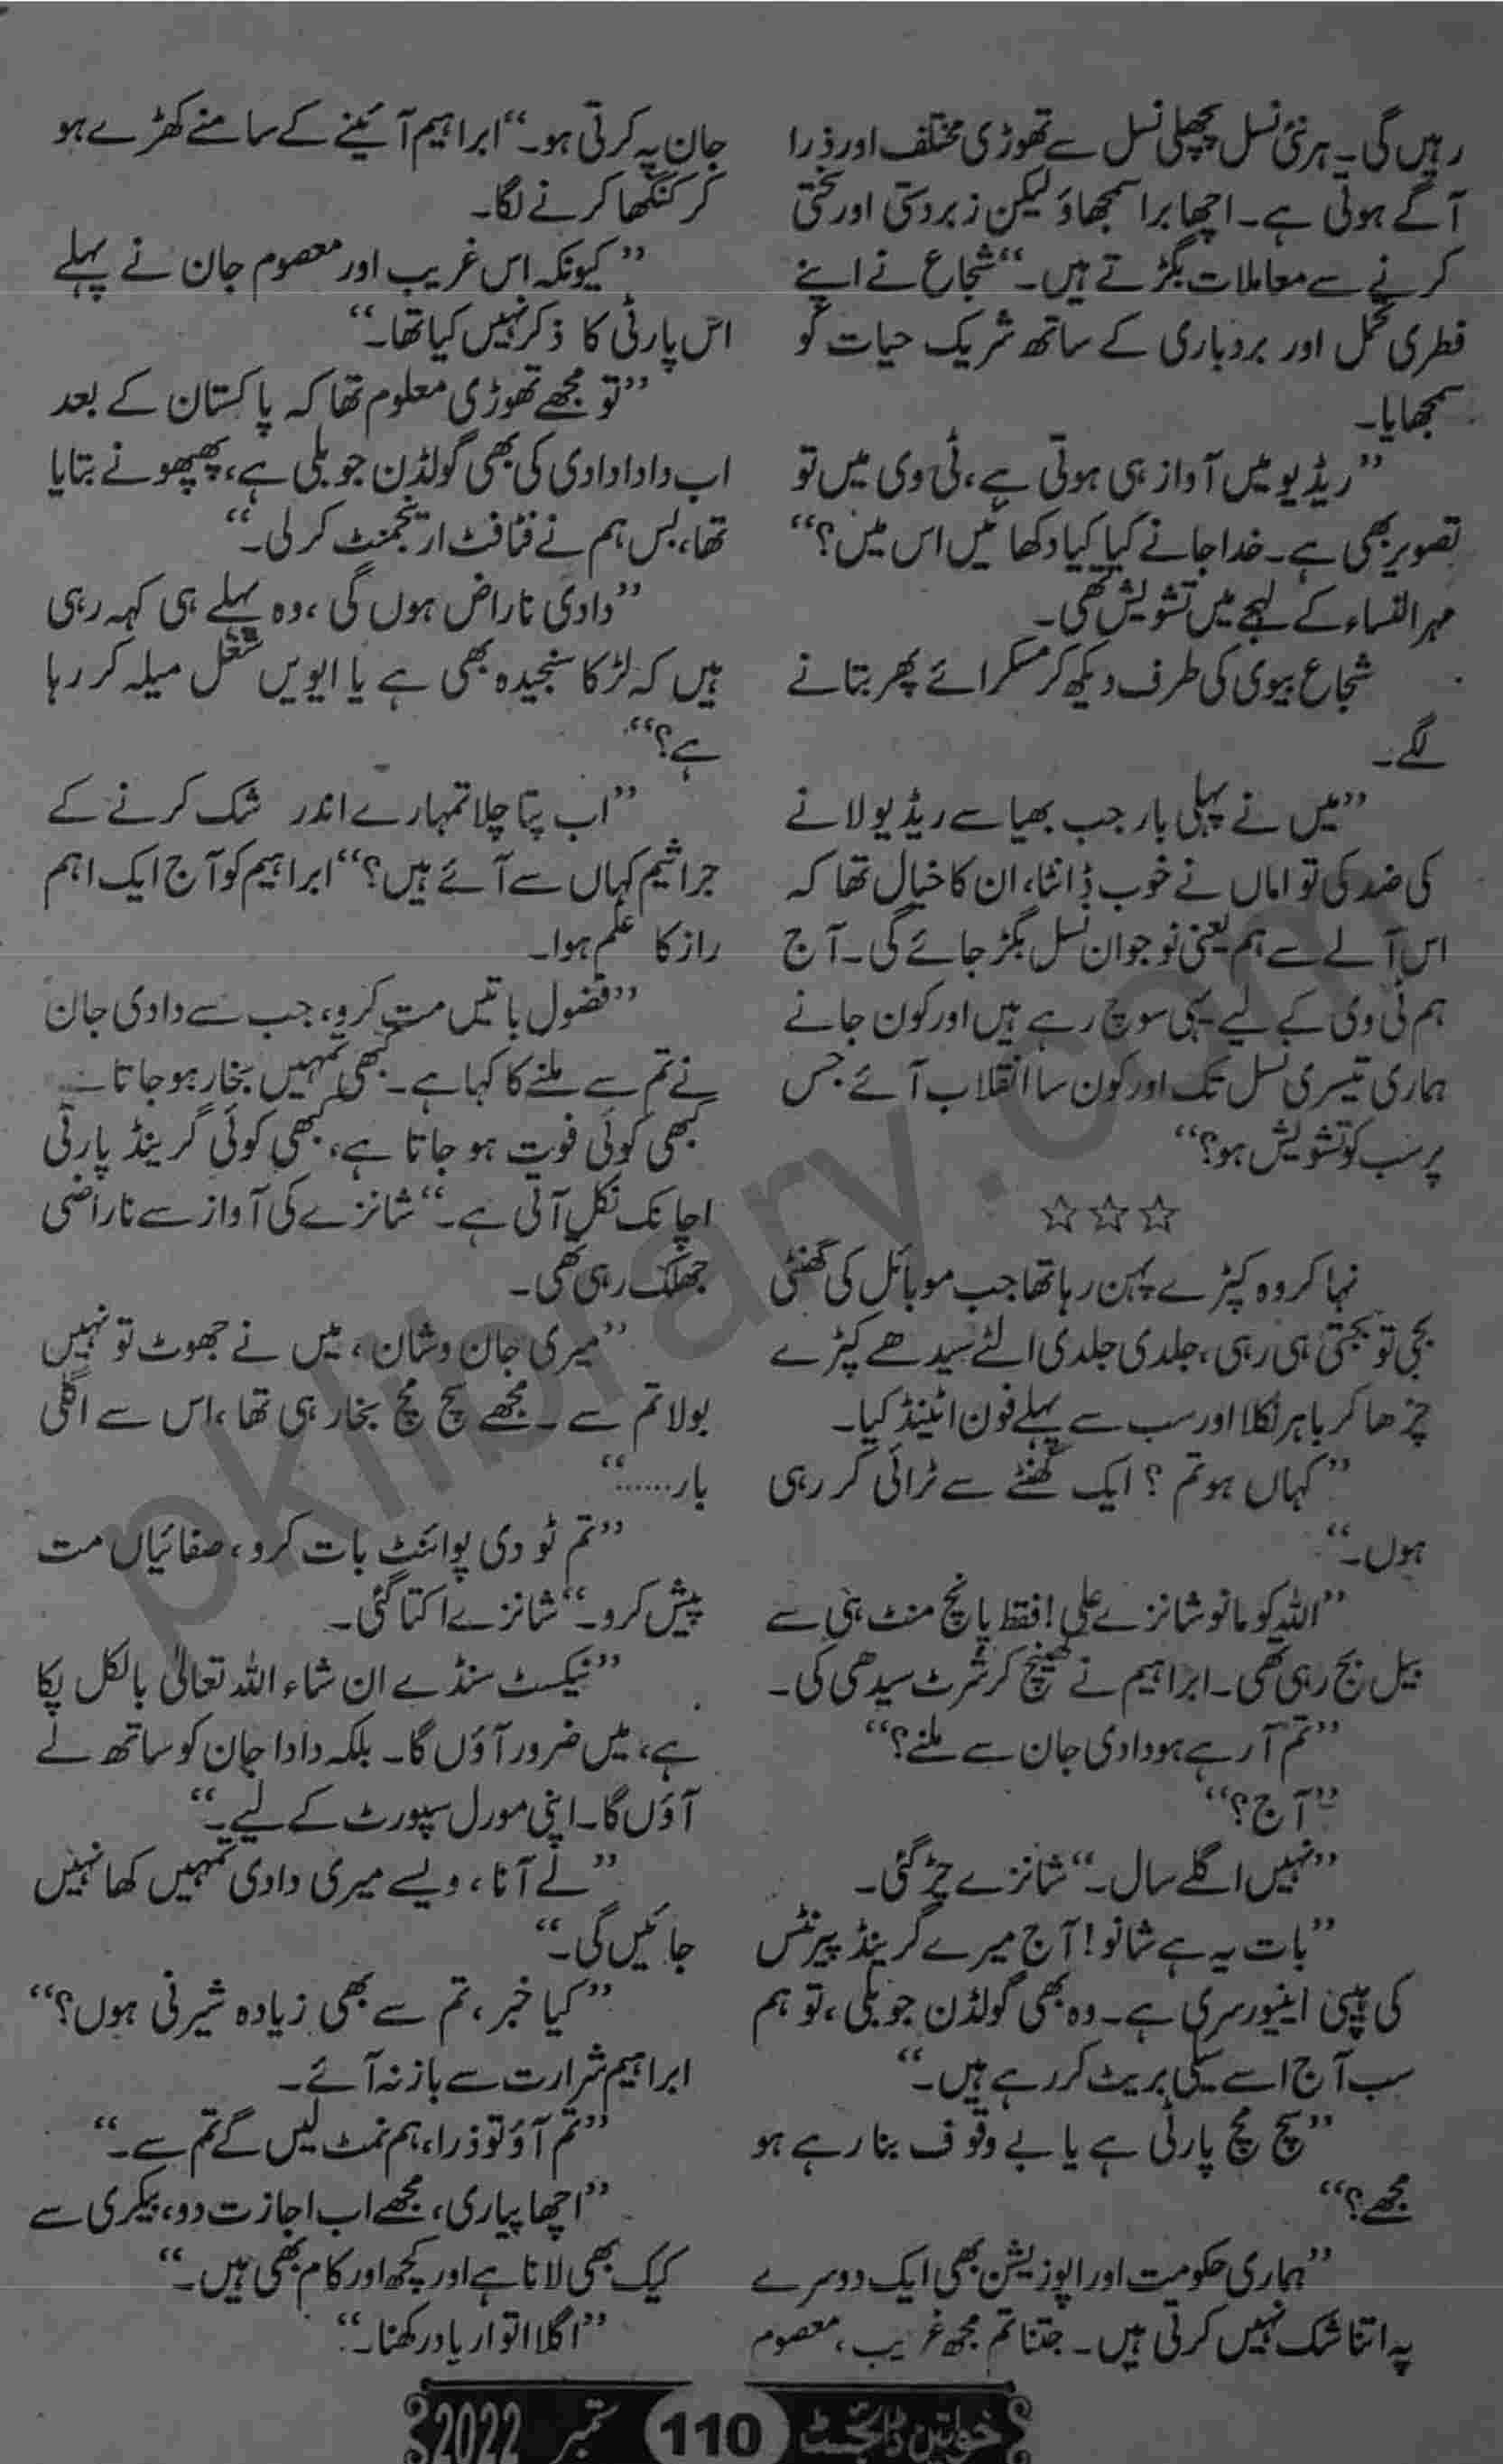 رہیں گی۔ ہر نئی نسل پچھلی نسل سے تھوڑی مختلف اور ذرا
آگے ہوتی ہے۔ اچھا برا سمجھاؤ لیکن زبردستی اور سختی
کرنے سے معاملات بگڑتے ہیں۔“ شجاع نے اپنے
فطری تحمل اور بردباری کے ساتھ شریک حیات کو
سمجھایا۔
”ریڈیو میں آواز ہی ہوتی ہے، ٹی وی میں تو
تصویر بھی ہے۔ خدا جانے کیا کیا دکھائیں اس میں؟“
مہرالنساء کے لہجے میں تشویش تھی۔
شجاع بیوی کی طرف دیکھ کر مسکرائے پھر بتانے
لگے۔
”میں نے پہلی بار جب بھیا سے ریڈیو لانے
کی ضد کی تو اماں نے خوب ڈانٹا، ان کا خیال تھا کہ
اس آلے سے ہم یعنی نوجوان نسل بگڑ جائے گی۔ آج
ہم ٹی وی کے لیے یہی سوچ رہے ہیں اور کون جانے
ہماری تیسری نسل تک اور کون سا انقلاب آئے جس
پر سب کو تشویش ہو؟“
☆☆☆
نہا کر وہ کپڑے پہن رہا تھا جب موبائل کی گھنٹی
بجی تو بجتی ہی رہی، جلدی جلدی الٹے سیدھے کپڑے
چڑھا کر باہر نکلا اور سب سے پہلے فون اٹینڈ کیا۔
”کہاں ہو تم؟ ایک گھنٹے سے ٹرائی کر رہی
ہوں۔“
”اللہ کو مانو شانزے علی! فقط پانچ منٹ ہی سے
بیل بج رہی تھی۔ ابراہیم نے کھینچ کر شرٹ سیدھی کی۔
”تم آ رہے ہو دادی جان سے ملنے؟“
”آج؟“
”نہیں اگلے سال۔“ شانزے چڑ گئی۔
”بات یہ ہے شانو! آج میرے گرینڈ پیرنٹس
کی ہیپی اینیورسری ہے۔ وہ بھی گولڈن جوبلی، تو ہم
سب آج اسے سیلی بریٹ کر رہے ہیں۔“
”سچ مچ پارٹی ہے یا بے وقوف بنا رہے ہو
مجھے؟“
”ہماری حکومت اور اپوزیشن بھی ایک دوسرے
پہ اتنا شک نہیں کرتی ہیں۔ جتنا تم مجھ غریب، معصوم
جان پہ کرتی ہو۔“ ابراہیم آئینے کے سامنے کھڑے ہو
کر کنگھا کرنے لگا۔
”کیونکہ اس غریب اور معصوم جان نے پہلے
اس پارٹی کا ذکر نہیں کیا تھا۔“
”تو مجھے تھوڑی معلوم تھا کہ پاکستان کے بعد
اب دادا دادی کی بھی گولڈن جوبلی ہے، پھپھو نے بتایا
تھا، بس ہم نے فٹافٹ ارینجمنٹ کر لی۔“
”دادی ناراض ہوں گی، وہ پہلے ہی کہہ رہی
ہیں کہ لڑکا سنجیدہ بھی ہے یا ایویں شغل میلہ کر رہا
ہے؟“
”اب پتا چلا تمہارے اندر شک کرنے کے
جراثیم کہاں سے آئے ہیں؟“ ابراہیم کو آج ایک اہم
راز کا علم ہوا۔
”فضول باتیں مت کرو، جب سے دادی جان
نے تم سے ملنے کا کہا ہے۔ کبھی تمہیں بخار ہو جاتا ہے
کبھی کوئی فوت ہو جاتا ہے، کبھی کوئی گرینڈ پارٹی
اچانک نکل آتی ہے۔“ شانزے کی آواز سے ناراضی
جھلک رہی تھی۔
”میری جان و شان، میں نے جھوٹ تو نہیں
بولا تم سے۔ مجھے سچ مچ بخار ہی تھا، اس سے اگلی
بار......“
”تم ٹو دی پوائنٹ بات کرو، صفائیاں مت
پیش کرو۔“ شانزے اکتا گئی۔
”نیکسٹ سنڈے ان شاء اللہ تعالیٰ بالکل پکا
ہے، میں ضرور آؤں گا۔ بلکہ دادا جان کو ساتھ لے
آؤں گا۔ اپنی مورل سپورٹ کے لیے۔“
”لے آنا، ویسے میری دادی تمہیں کھا نہیں
جائیں گی۔“
”کیا خبر، تم سے بھی زیادہ شیرنی ہوں؟“
ابراہیم شرارت سے باز نہ آئے۔
”تم آؤ تو ذرا، ہم نمٹ لیں گے تم سے۔“
”اچھا پیاری، مجھے اب اجازت دو، بیکری سے
کیک بھی لانا ہے اور کچھ اور کام بھی ہیں۔“
”اگلا اتوار یاد رکھنا۔“
خواتین ڈائجسٹ 110 ستمبر 2022
pklibrary.com